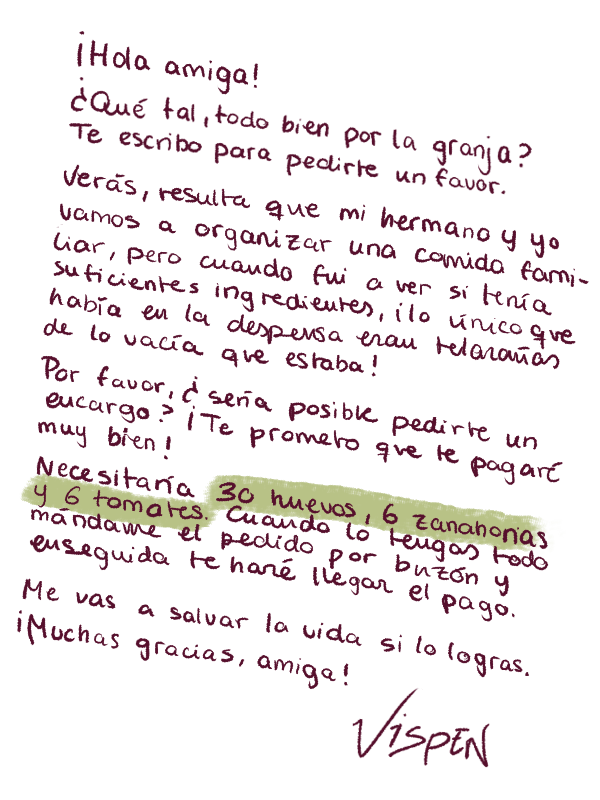 ¡Hola amiga!
¿Qué tal, todo bien por la granja?
Te escribo para pedirte un favor.
Verás, resulta que mi hermano y yo
vamos a organizar una comida fami-
liar, pero cuando fui a ver si tenía
suficientes ingredientes, ¡lo único que
había en la despensa eran telarañas
de lo vacía que estaba!
Por favor, ¿sería posible pedirte un
encargo? ¡Te prometo que te pagaré
muy bien!
Necesitaría 30 huevos, 6 zanahorias
y 6 tomates. Cuando lo tengas todo
mándame el pedido por buzón y
enseguida te haré llegar el pago.
Me vas a salvar la vida si lo logras.
¡Muchas gracias, amiga!
VISPEN